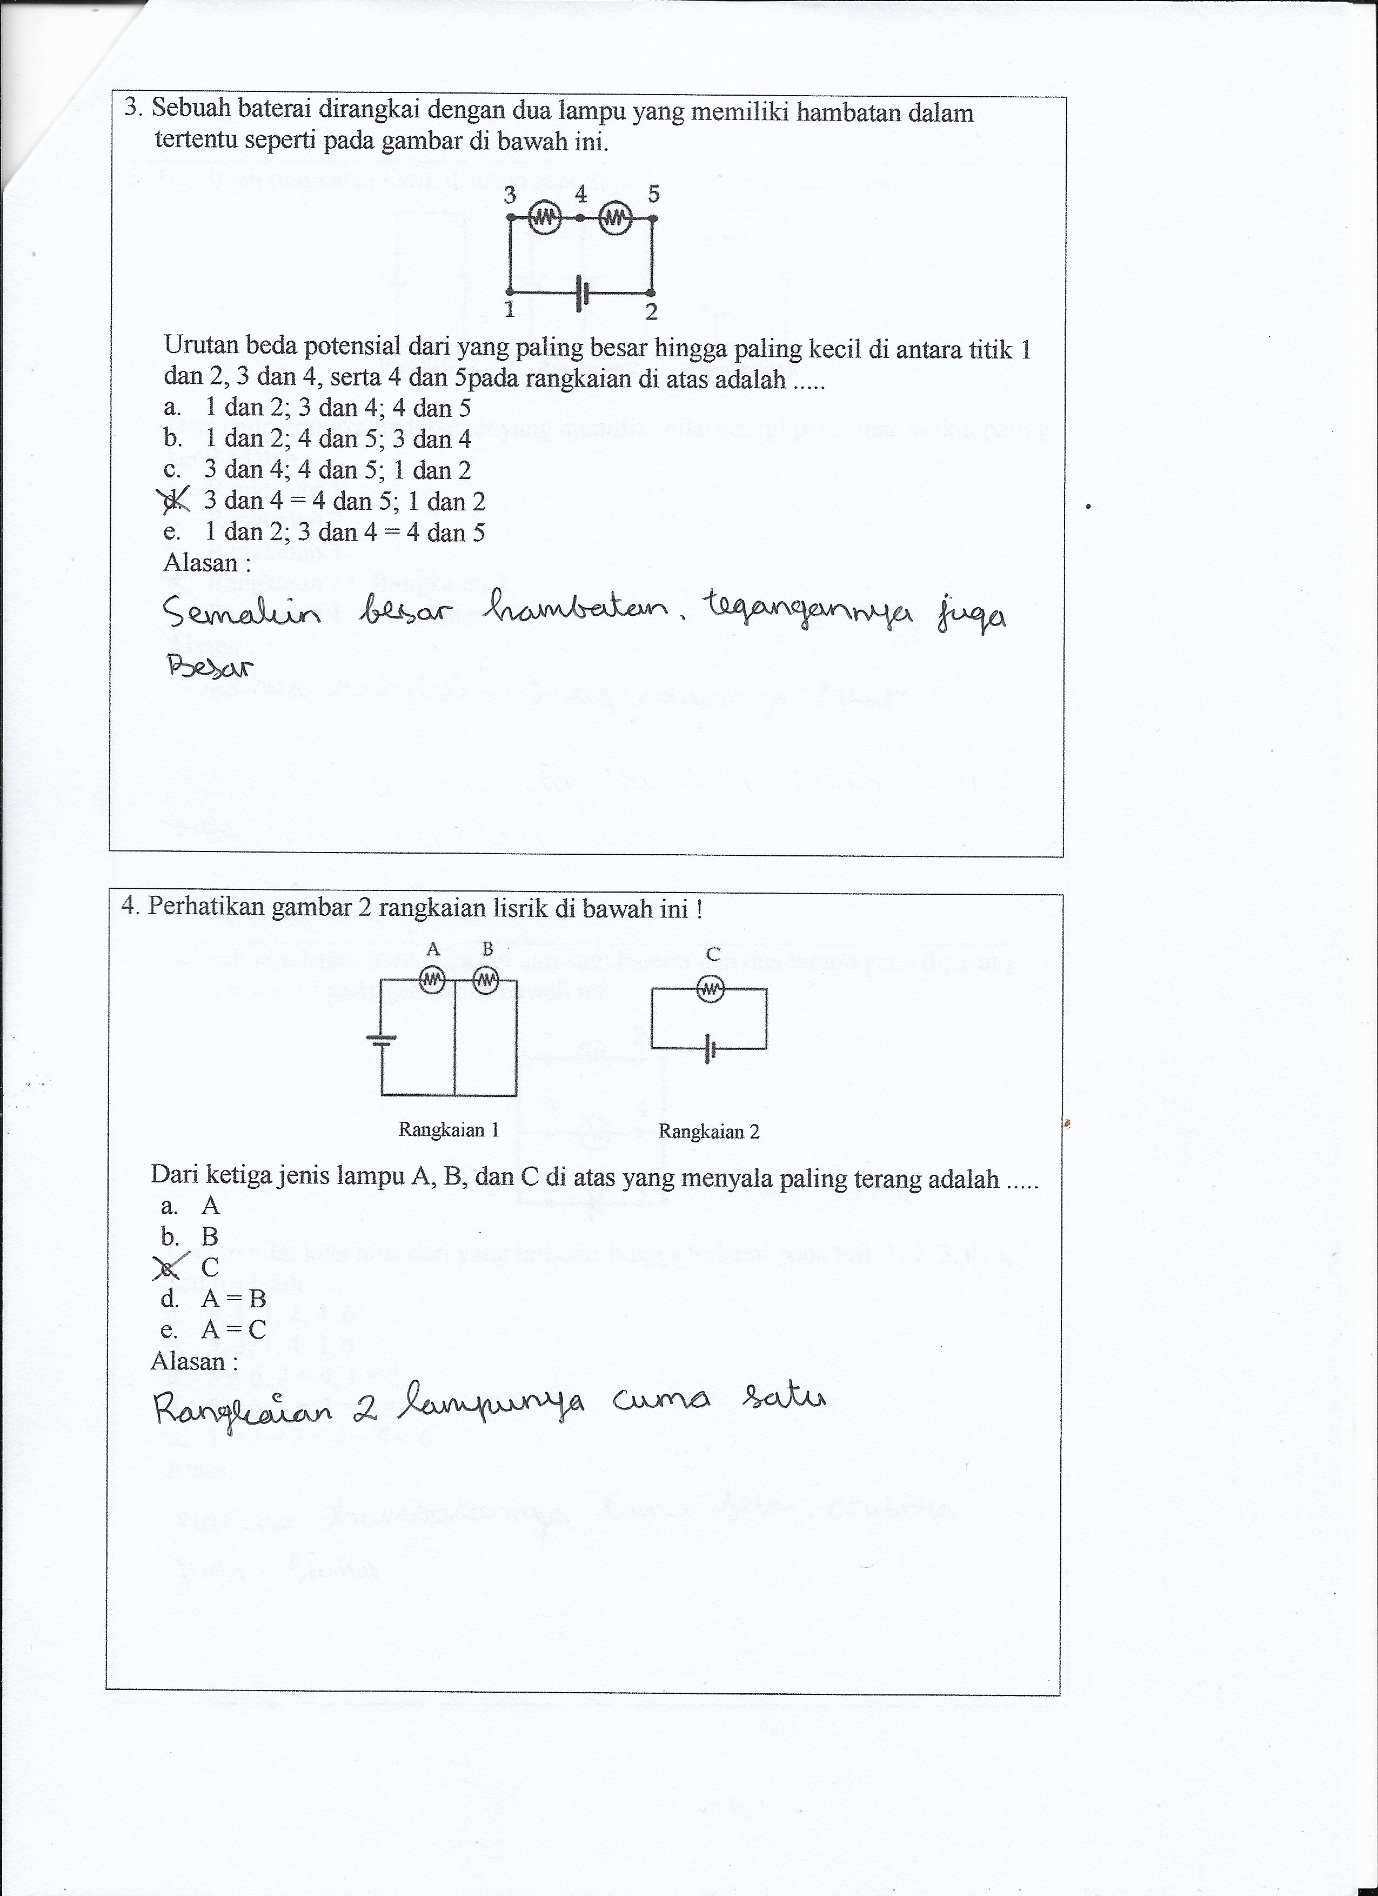 3. Sebuah baterai dirangkai dengan dua lampu yang memiliki hambatan dalam
tertentu seperti pada gambar di bawah ini.
3 4 5
1 2
Urutan beda potensial dari yang paling besar hingga paling kecil di antara titik 1
dan 2, 3 dan 4, serta 4 dan 5pada rangkaian di atas adalah .....
a. 1 dan 2; 3 dan 4; 4 dan 5
b. 1 dan 2; 4 dan 5; 3 dan 4
c. 3 dan 4; 4 dan 5; 1 dan 2
d. 3 dan 4 = 4 dan 5; 1 dan 2
e. 1 dan 2; 3 dan 4 = 4 dan 5
Alasan :
Semakin besar hambatan, tegangannya juga
Besar
4. Perhatikan gambar 2 rangkaian lisrik di bawah ini !
A B C
Rangkaian 1 Rangkaian 2
Dari ketiga jenis lampu A, B, dan C di atas yang menyala paling terang adalah .....
a. A
b. B
c. C
d. A = B
e. A = C
Alasan :
Rangkaian 2 lampunya cuma satu